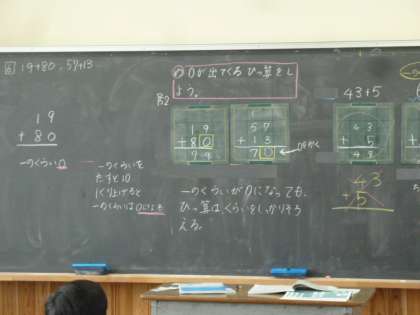 19+80、57+13
め 0が出てくるひっ算をし
よう。
43+5
19
+80
一のくらい0
一のくらいを
たすと10
くり上げると
19
+80
99
57
+13
70
43
+ 5
48
43
+5
一のくらいが0になっても、
ひっ算はくらいをしっかりそろ
える。